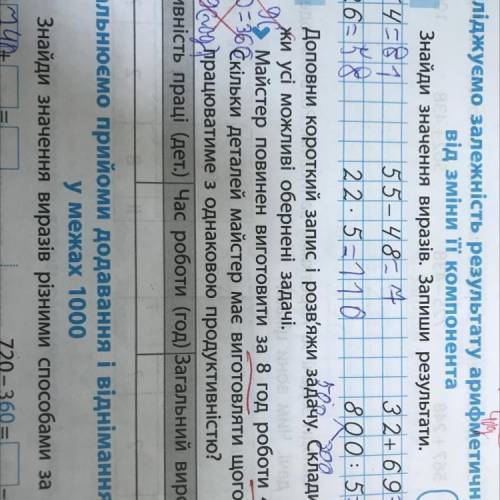 ліджуємо залежність результату арифметичн
від зміни її компонента
Знайди значення виразів. Запиши результати.
14=81 55-48=7 32+69=
26=48 22·5=110 800:5=
Доповни короткий запис і розв'яжи задачу. Склади
жи усі можливі обернені задачі.
Майстер повинен виготовити за 8 год роботи
Скільки деталей майстер має виготовляти щого
працюватиме з однаковою продуктивністю?
ивність праці (дет.) Час роботи (год) Загальний виро
альнюємо прийоми додавання і віднімання
у межах 1000
Знайди значення виразів різними способами за
= 720-360=